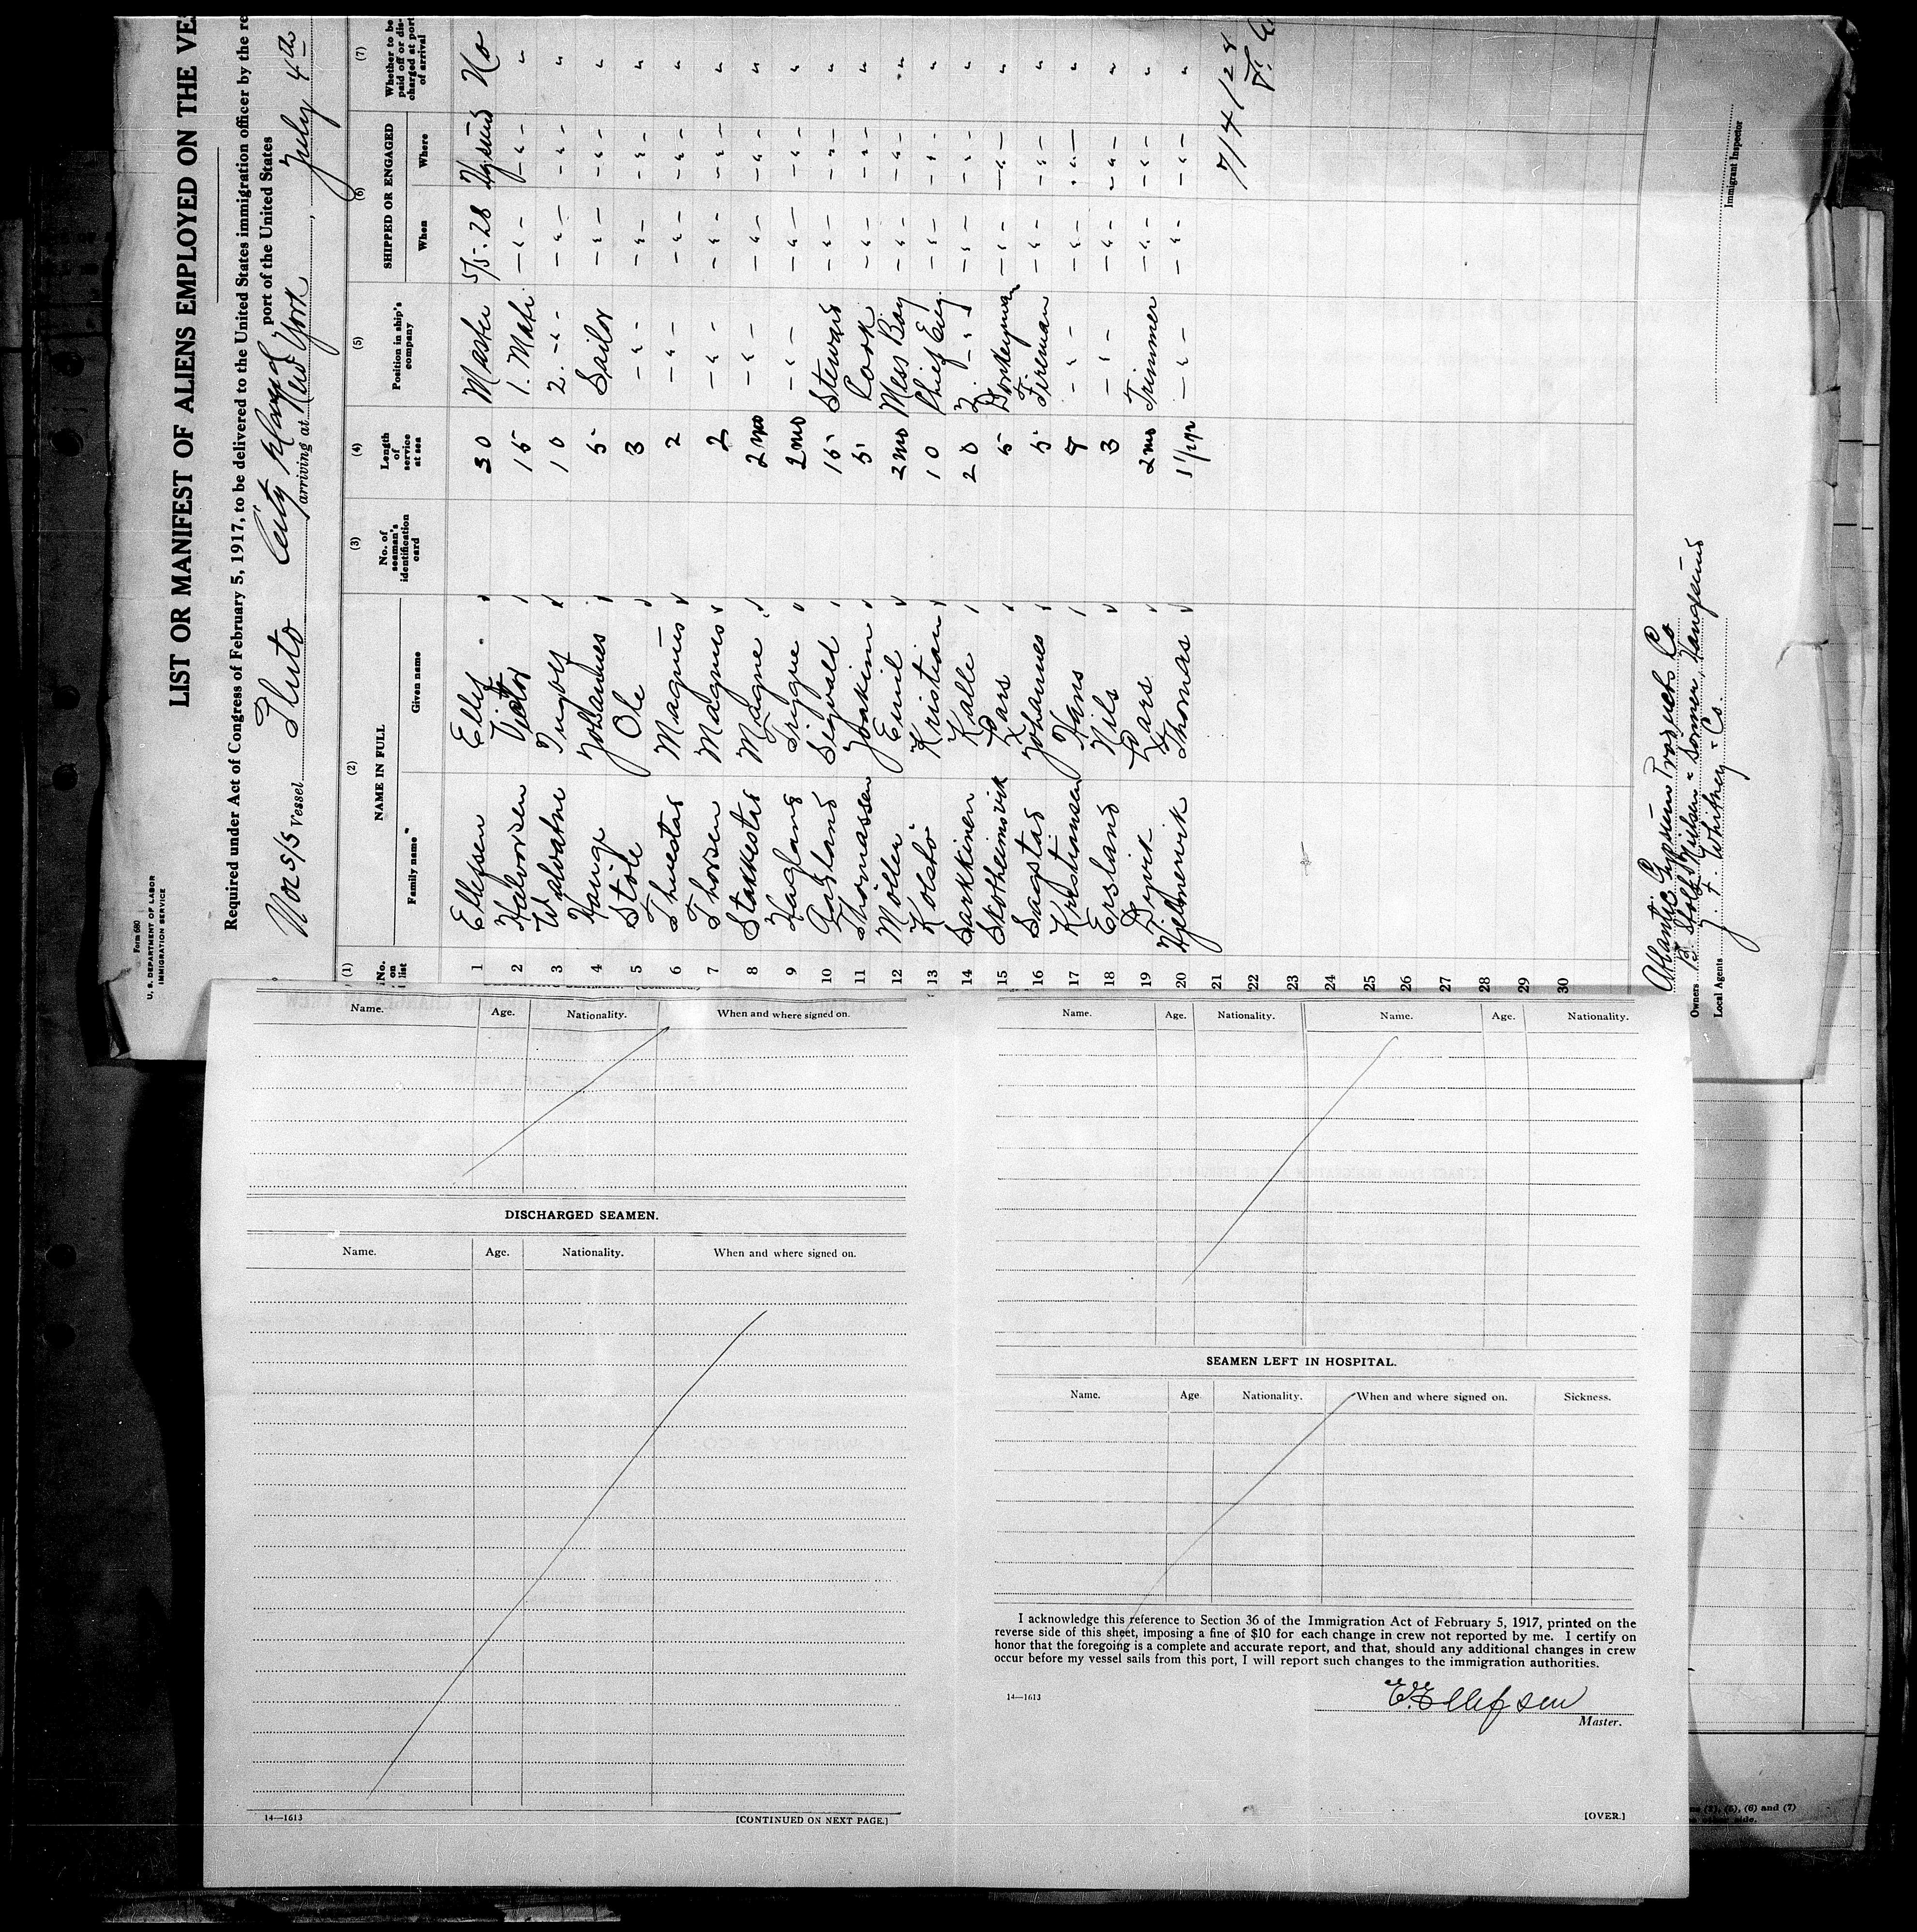 Form 680
U. S. DEPARTMENT OF LABOR
IMMIGRATION SERVICE
LIST OR MANIFEST OF ALIENS EMPLOYED ON THE VE
Required under Act of Congress of February 5, 1917, to be delivered to the United States immigration officer by the re
port of the United States
Nor S/S Vessel Pluto City Island arriving at New York, July 4th
(1) (2) (3) (4) (5) (6) (7)
No. on list NAME IN FULL No. of seaman's identification card Length of service at sea Position in ship's company SHIPPED OR ENGAGED Whether to be paid off or discharged at port of arrival
Family name Given name When Where
1 Ellefsen Elly 30 Master 5/5-28 No
2 Halvorsen Victor 15 1. Mate -"- -"- "
3 Walvatne Ingolf 10 2. -"- -"- -"- "
4 Hauge Johannes 5 Sailor -"- -"- "
5 Støle Ole 3 -"- -"- -"- "
6 Thuestad Magnus 2 -"- -"- -"- "
7 Thorsen Magnus 2 -"- -"- -"- "
8 Stakkestad Magne 2 mo -"- -"- -"- "
9 Haugland Trigve 2 mo -"- -"- -"- "
10 Aarsland Sigvald 15 Steward -"- -"- "
11 Thomassen Joakim 5 Cook -"- -"- "
12 Möller Emil 2 mo Mess Boy -"- -"- "
13 Kolstø Kristian 10 Chief Eng. -"- -"- "
14 Sarkkinen Kalle 20 2. -"- -"- -"- "
15 Skotheimsvik Lars 5 Donkeyman -"- -"- "
16 Sagstad Johannes 5 Fireman -"- -"- "
17 Kristiansen Hans -"- -"- -"- "
18 Ersland Nils 3 -"- -"- -"- "
19 Djuvik Lars 2 mo Trimmer -"- -"- "
20 Kjelmervik Thomas 1 1/2 yr -"- -"- -"- "
21
22
23
24
25
26
27
28
29
30
7/4/28
Atlantic Gypsum Products Co
Owners
Local Agents J. F. Whitney & Co.
Immigrant Inspector
Name. Age. Nationality. When and where signed on.
DISCHARGED SEAMEN.
Name. Age. Nationality. When and where signed on.
14—1613 [CONTINUED ON NEXT PAGE.]
Name. Age. Nationality. Name. Age. Nationality.
SEAMEN LEFT IN HOSPITAL.
Name. Age Nationality. When and where signed on. Sickness.
I acknowledge this reference to Section 36 of the Immigration Act of February 5, 1917, printed on the
reverse side of this sheet, imposing a fine of $10 for each change in crew not reported by me. I certify on
honor that the foregoing is a complete and accurate report, and that, should any additional changes in crew
occur before my vessel sails from this port, I will report such changes to the immigration authorities.
14—1613
E. Ellefsen
Master.
[OVER.]
(5), (6) and (7)
other side.